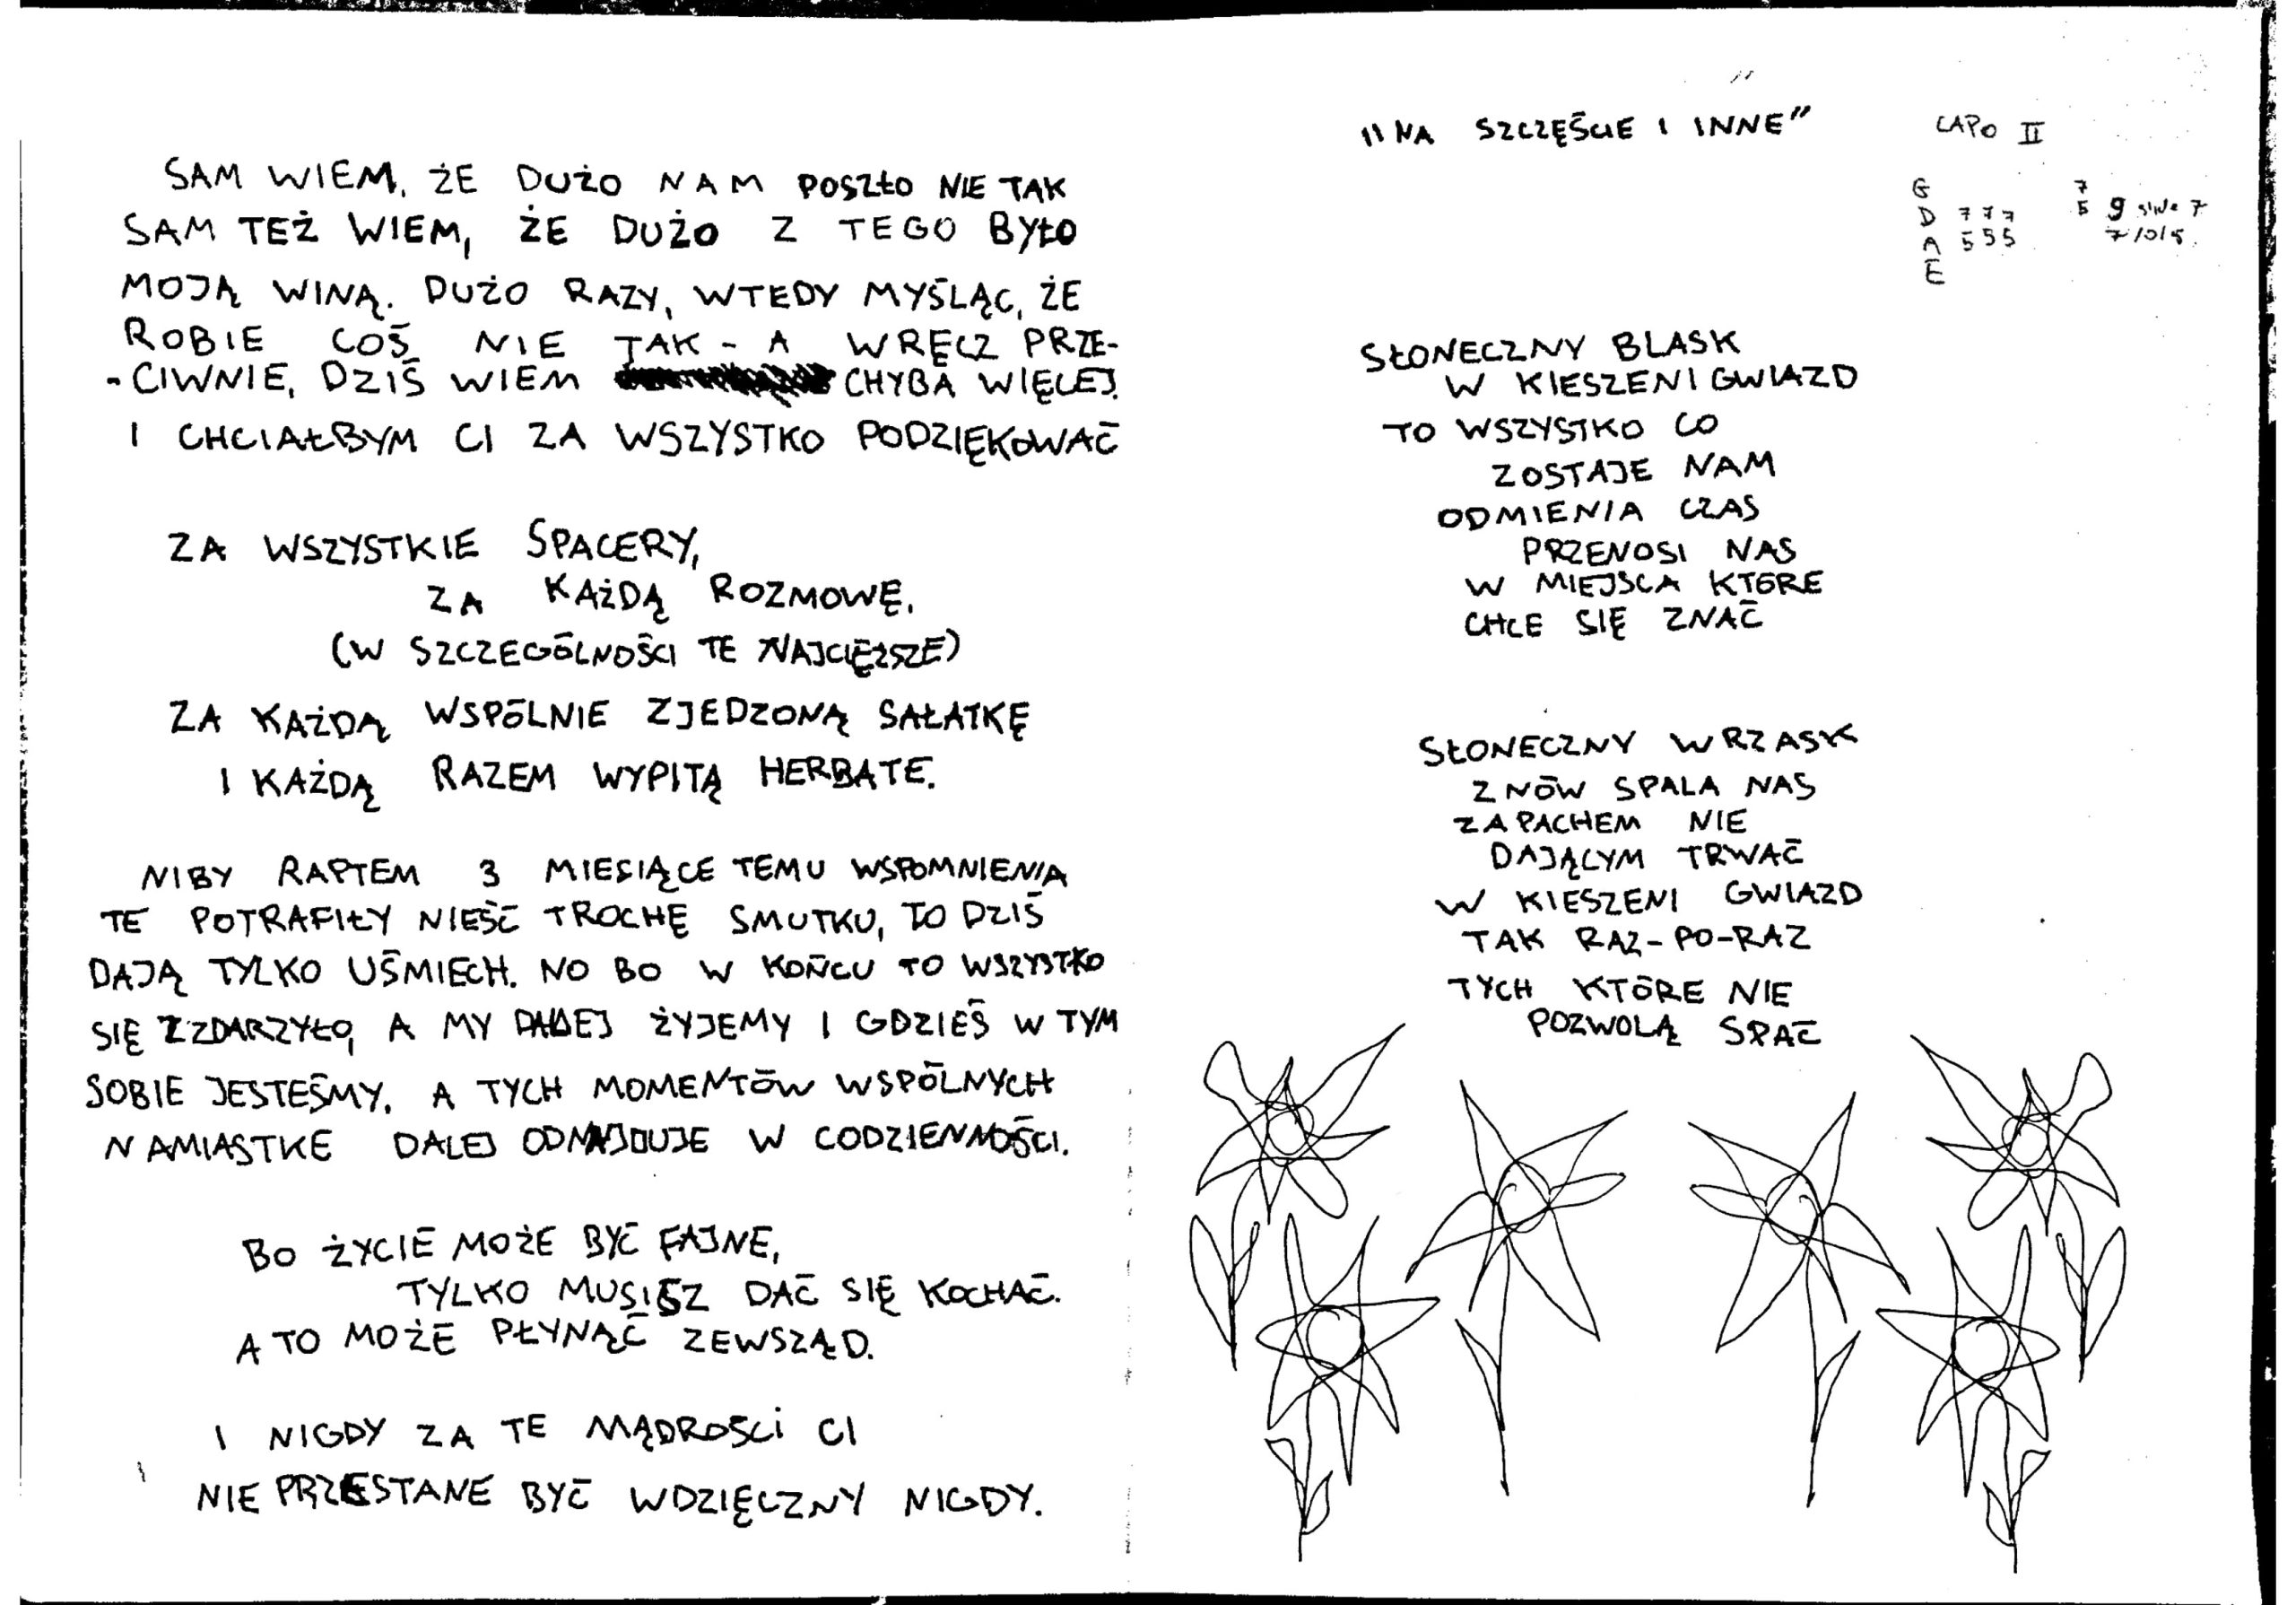 SAM WIEM, ŻE DUŻO NAM POSZŁO NIE TAK
SAM TEŻ WIEM, ŻE DUŻO Z TEGO BYŁO
MOJĄ WINĄ. DUŻO RAZY, WTEDY MYŚLĄC, ŻE
ROBIE COŚ NIE TAK - A WRĘCZ PRZE-
- CIWNIE, DZIŚ WIEM CHYBA WIĘCEJ.
I CHCIAŁBYM CI ZA WSZYSTKO PODZIĘKOWAĆ
ZA WSZYSTKIE SPACERY,
ZA KAŻDĄ ROZMOWĘ,
(W SZCZEGÓLNOŚCI TE NAJCIĘŻSZE)
ZA KAŻDĄ WSPÓLNIE ZJEDZONĄ SAŁATKĘ
I KAŻDĄ RAZEM WYPITĄ HERBATE.
NIBY RAPTEM 3 MIESIĄCE TEMU WSPOMNIENIA
TE POTRAFIŁY NIEŚĆ TROCHĘ SMUTKU, TO DZIŚ
DAJĄ TYLKO UŚMIECH. NO BO W KOŃCU TO WSZYSTKO
SIĘ ZZDARZYŁO, A MY DALEJ ŻYJEMY I GDZIEŚ W TYM
SOBIE JESTEŚMY. A TYCH MOMENTÓW WSPÓLNYCH
NAMIASTKE DALEJ ODNAJDUJE W CODZIENNOŚCI.
BO ŻYCIE MOŻE BYĆ FAJNE,
TYLKO MUSISZ DAĆ SIĘ KOCHAĆ.
A TO MOŻE PŁYNĄĆ ZEWSZĄD.
I NIGDY ZA TE MĄDROŚCI CI
NIE PRZESTANE BYĆ WDZIĘCZNY NIGDY.
"NA SZCZĘŚCIE I INNE"
CAPO II
G 7
D 777 5 9 7
A 555 7/0/5.
E
SŁONECZNY BLASK
W KIESZENI GWIAZD
TO WSZYSTKO CO
ZOSTAJE NAM
ODMIENIA CZAS
PRZENOSI NAS
W MIEJSCA KTÓRE
CHCE SIĘ ZNAĆ
SŁONECZNY WRZASK
ZNÓW SPALA NAS
ZAPACHEM NIE
DAJĄCYM TRWAĆ
W KIESZENI GWIAZD
TAK RAZ-PO-RAZ
TYCH KTÓRE NIE
POZWOLĄ SPAĆ